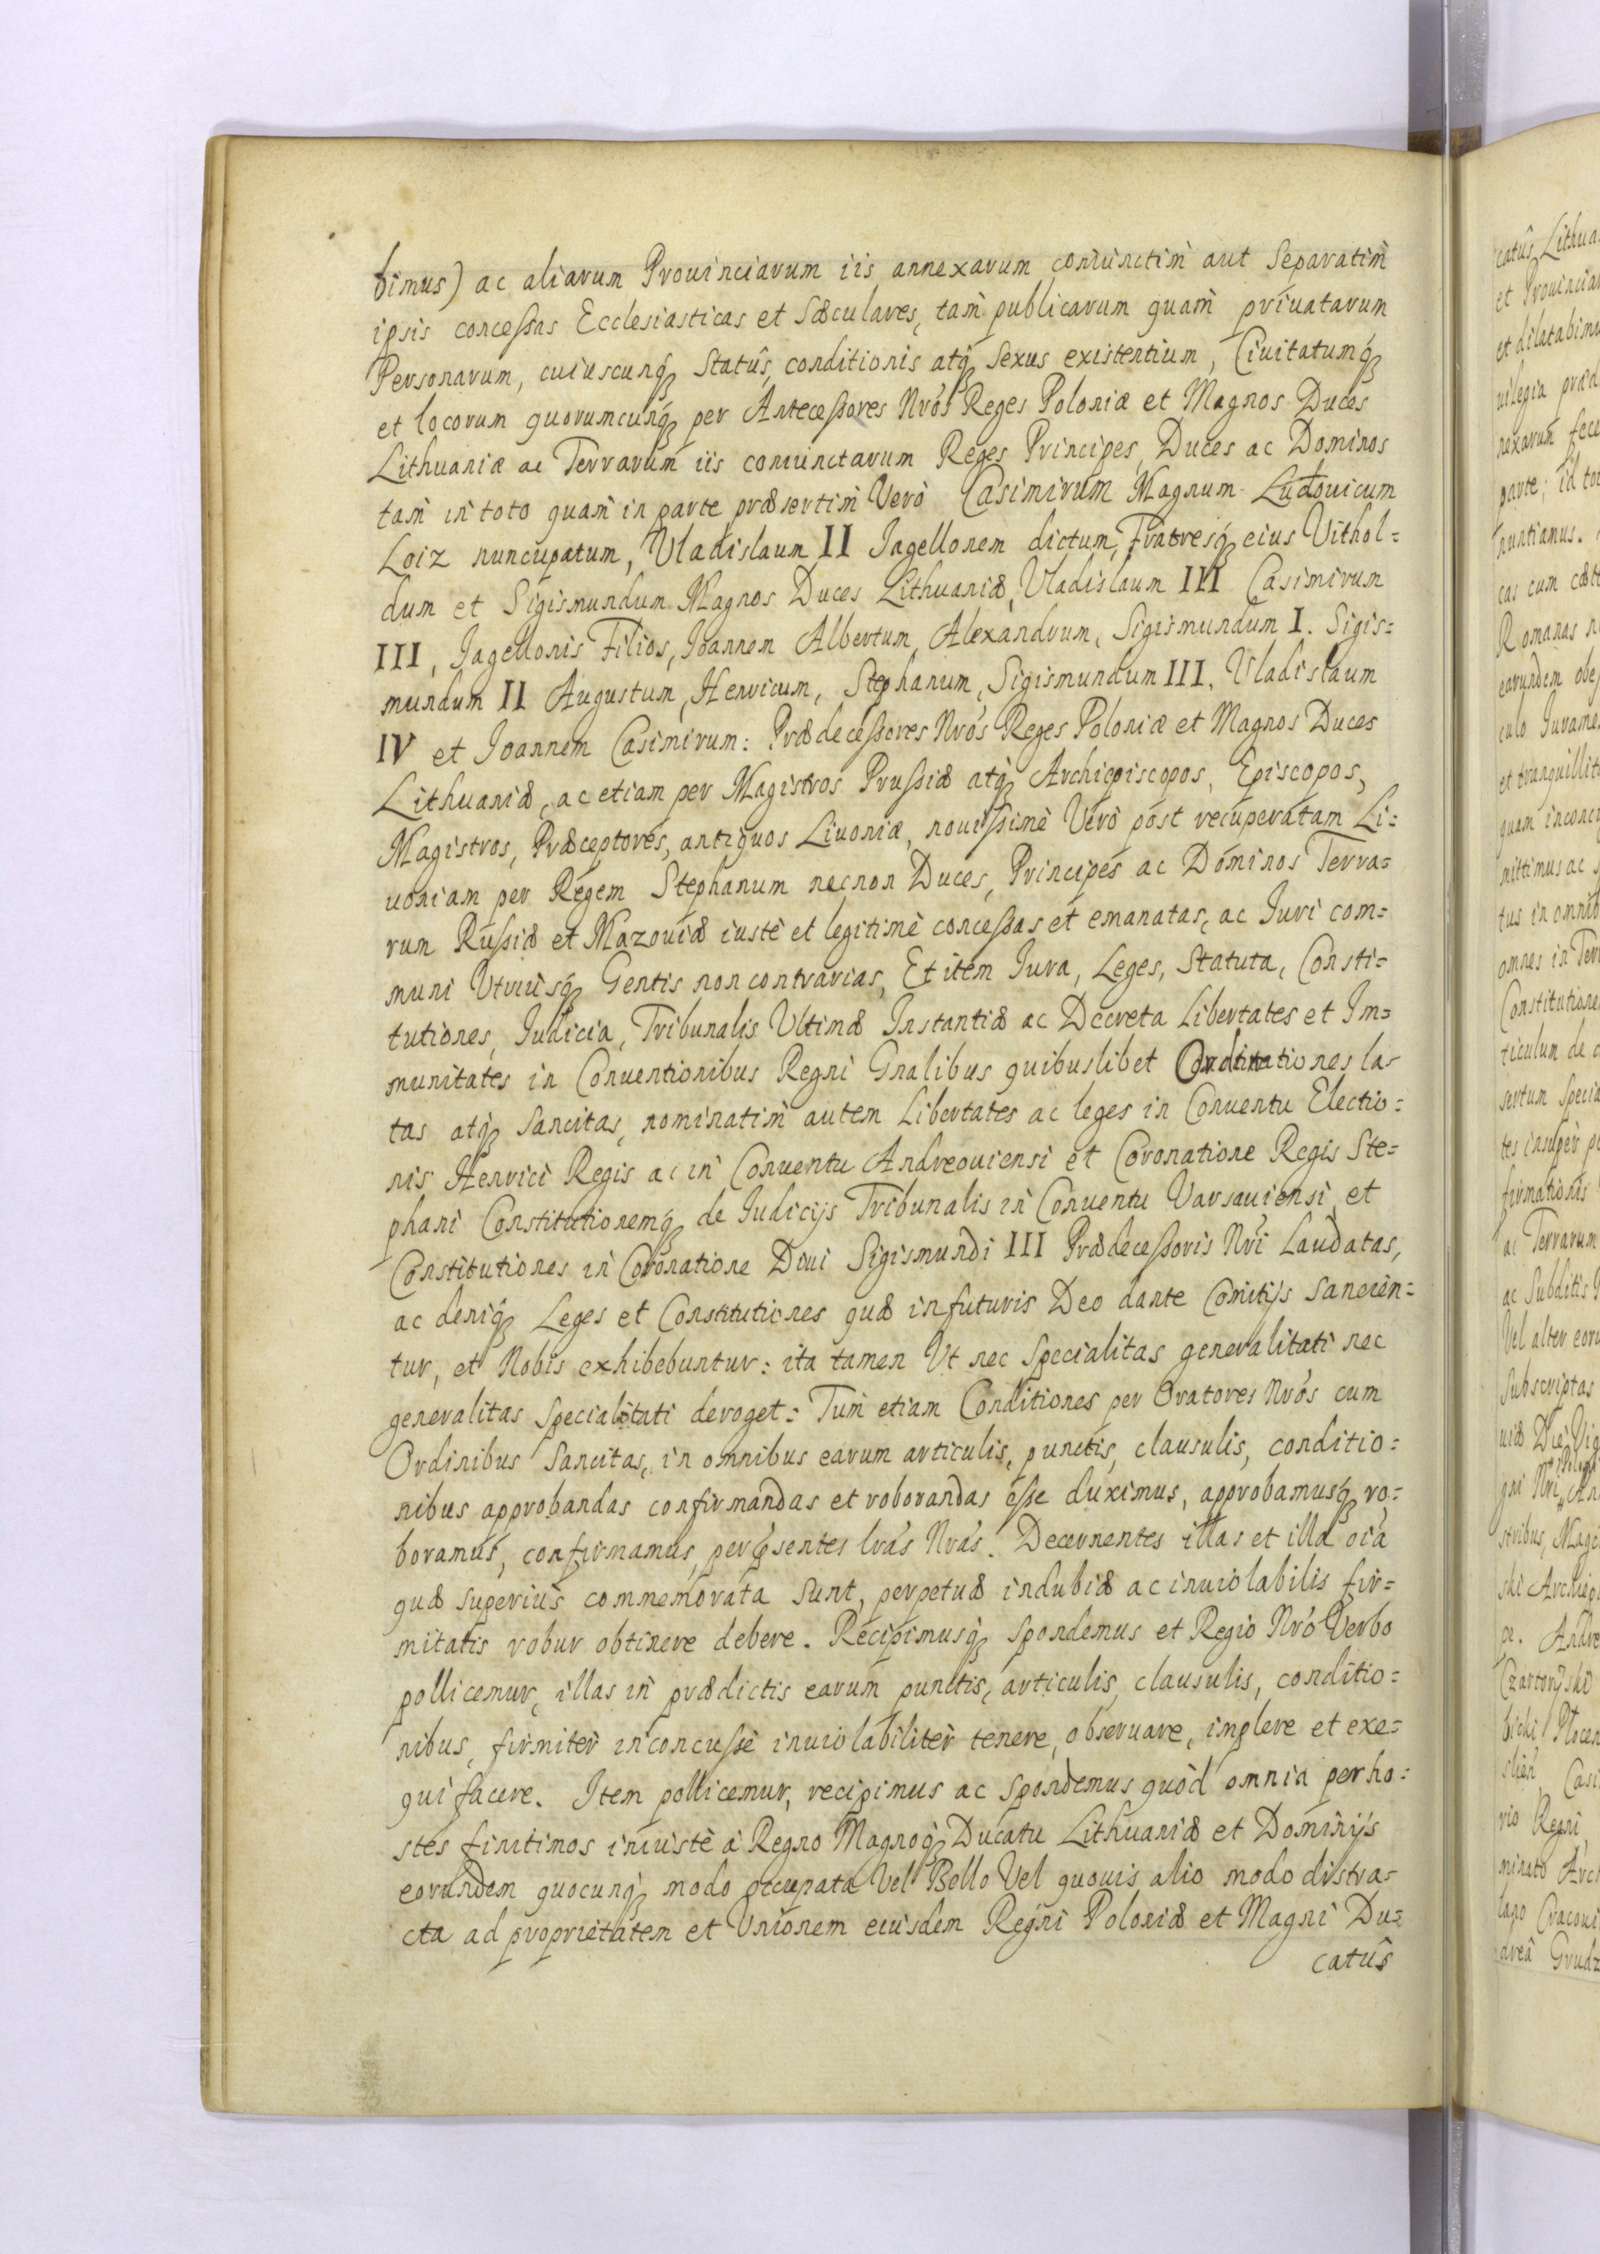 bimus) ac aliarum Prouinciarum iis annexarum coniunctim̀ aut Separatim̀
ipsis concessas Ecclesiasticas et Sæculares, tam̀ publicarum quam̀ priuatarum
Personarum, cuiuscunq; Statûs, conditionis atq; Sexus existentium, Ciuitatumq;
et locorum quorumcunq; per Antecessores Nrós Reges Poloniæ et Magnos Duces
Lithuaniæ ac Terrarum iis coniunctarum Reges Principes, Duces ac Dominos
tam̀ in toto quam̀ in parte præsertim̀ Verò Casimirum Magnum Ludouicum
Loiz nuncupatum, Vladislaum II Jagellonem dictum, Fratresq; eius Vithol=
dum et Sigismundum Magnos Duces Lithuaniæ, Vladislaum III Casimirum
III, Jagellonis Filios, Joannem Albertum, Alexandrum, Sigismundum I. Sigis=
mundum II Augustum, Henricum, Stephanum, Sigismundum III, Vladislaum
IV et Joannem Casimirum: Prædecessores Nrós Reges Poloniæ et Magnos Duces
Lithuaniæ, ac etiam per Magistros Prussiæ atq; Archiepiscopos, Episcopos,
Magistros, Præceptores, antiquos Liuoniæ, nouissimè Verò post recuperatam Li=
uoniam per Regem Stephanum necnon Duces, Principes ac Dominos Terra=
rum Russiæ et Mazouiæ iustè et legitimè concessas et emanatas, ac Iuri com=
muni Vtriusq; Gentis non contrarias, Et item Iura, Leges, Statuta, Consti=
tutiones, Iudicia, Tribunalis Vltimæ Instantiæ ac Decreta Libertates et Im=
munitates in Conuentionibus Regni Gnalibus quibuslibet Ordinationes la=
tas atq; Sancitas, nominatim̀ autem Libertates ac leges in Conuentu Electio=
nis Henrici Regis ac in Conuentu Andreouiensi et Coronatione Regis Ste=
phani Constitutionemq; de Iudicijs Tribunalis in Conuentu Varsauiensi, et
Constitutiones in Coronatione Diui Sigismundi III Prædecessoris Nri Laudatas,
ac deniq; Leges et Constitutiones quæ in futuris Deo dante Comitijs Sancien=
tur, et Nobis exhibebuntur: ita tamen Vt nec Specialitas generalitati nec
generalitas Specialitati deroget: Tum̀ etiam Conditiones per Oratores Nrós cum
Ordinibus Sancitas, in omnibus earum articulis, punctis, clausulis, conditio=
nibus approbandas confirmandas et roborandas esse duximus, approbamusq; ro=
boramus, confirmamus, per psentes lrás Nrás. Decernentes illas et illa oia
quæ superiùs commemorata Sunt, perpetuæ indubiæ ac inuiolabilis fir=
mitatis robur obtinere debere. Recipimusq; Spondemus et Regio Nró Verbo
pollicemur, illas in prædictis earum punctis, articulis, clausulis, conditio=
nibus, firmitèr inconcussè inuiolabilitèr tenere, obseruare, implere et exe=
qui facere. Item pollicemur, recipimus ac Spondemus quòd omnia per ho=
stes finitimos iniustè à Regno Magnoq; Ducatu Lithuaniæ et Dominijs
eorundem quocunq; modo occupata Vel Bello Vel quouis alio modo distra=
cta ad proprietatem et Vnionem eiusdem Regni Poloniæ et Magni Du=
catûs